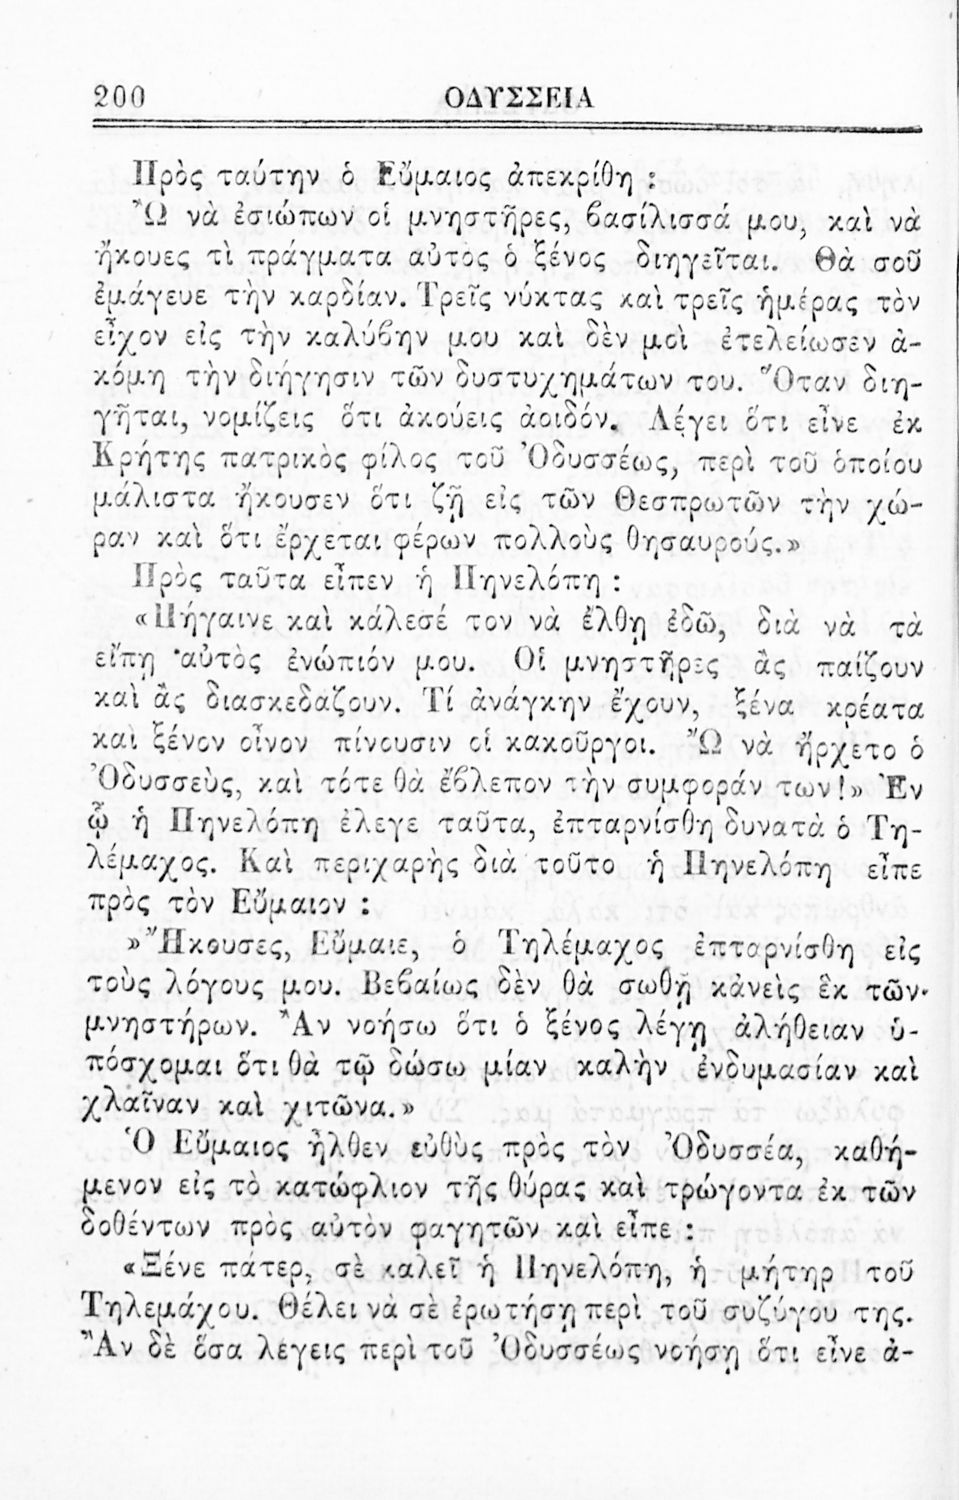 200 ΟΔΥΣΣΕΙΑ
Πρὸς ταύτην ὁ Εὔμαιος ἀπεκρίθη :
Ὢ νὰ ἐσιώπων οἱ μνηστῆρες, βασίλισσά μου, καὶ νὰ
ἤκουες τὶ πράγματα αὐτὸς ὁ ξένος διηγεῖται. Θὰ σοῦ
ἐμάγευε τὴν καρδίαν. Τρεῖς νύκτας καὶ τρεῖς ἡμέρας τὸν
εἶχον εἰς τὴν καλύβην μου καὶ δὲν μοὶ ἐτελείωσεν ἀ-
κόμη τὴν διήγησιν τῶν δυστυχημάτων του. Ὅταν διη-
γῆται, νομίζεις ὅτι ἀκούεις ἀοιδόν. Λέγει ὅτι εἶνε ἐκ
Κρήτης πατρικὸς φίλος τοῦ Ὀδυσσέως, περὶ τοῦ ὁποίου
μάλιστα ἤκουσεν ὅτι ζῇ εἰς τῶν Θεσπρωτῶν τὴν χώ-
ραν καὶ ὅτι ἔρχεται φέρων πολλοὺς θησαυρούς.»
Πρὸς ταῦτα εἶπεν ἡ Πηνελόπη :
«Πήγαινε καὶ κάλεσέ τον νὰ ἔλθῃ ἐδῶ, διὰ νὰ τὰ
εἴπῃ αὐτὸς ἐνώπιόν μου. Οἱ μνηστῆρες ἂς παίζουν
καὶ ἂς διασκεδάζουν. Τί ἀνάγκην ἔχουν, ξένα κρέατα
καὶ ξένον οἶνον πίνουσιν οἱ κακοῦργοι. Ὢ νὰ ἤρχετο ὁ
Ὀδυσσεὺς, καὶ τότε θὰ ἔβλεπον τὴν συμφοράν των!» Ἐν
ᾧ ἡ Πηνελόπη ἔλεγε ταῦτα, ἐπταρνίσθη δυνατὰ ὁ Τη-
λέμαχος. Καὶ περιχαρὴς διὰ τοῦτο ἡ Πηνελόπη εἶπε
πρὸς τὸν Εὔμαιον :
»Ἤκουσες, Εὔμαιε, ὁ Τηλέμαχος ἐπταρνίσθη εἰς
τοὺς λόγους μου. Βεβαίως δὲν θὰ σωθῇ κἀνεὶς ἐκ τῶν
μνηστήρων. Ἂν νοήσω ὅτι ὁ ξένος λέγῃ ἀλήθειαν ὑ-
πόσχομαι ὅτι θὰ τῷ δώσω μίαν καλὴν ἐνδυμασίαν καὶ
χλαῖναν καὶ χιτῶνα.»
Ὁ Εὔμαιος ἦλθεν εὐθὺς πρὸς τὸν Ὀδυσσέα, καθή-
μενον εἰς τὸ κατώφλιον τῆς θύρας καὶ τρώγοντα ἐκ τῶν
δοθέντων πρὸς αὐτὸν φαγητῶν καὶ εἶπε :
«Ξένε πάτερ, σὲ καλεῖ ἡ Πηνελόπη, ἡ μήτηρ τοῦ
Τηλεμάχου. Θέλει νὰ σὲ ἐρωτήσῃ περὶ τοῦ συζύγου της.
Ἂν δὲ ὅσα λέγεις περὶ τοῦ Ὀδυσσέως νοήσῃ ὅτι εἶνε ἀ-